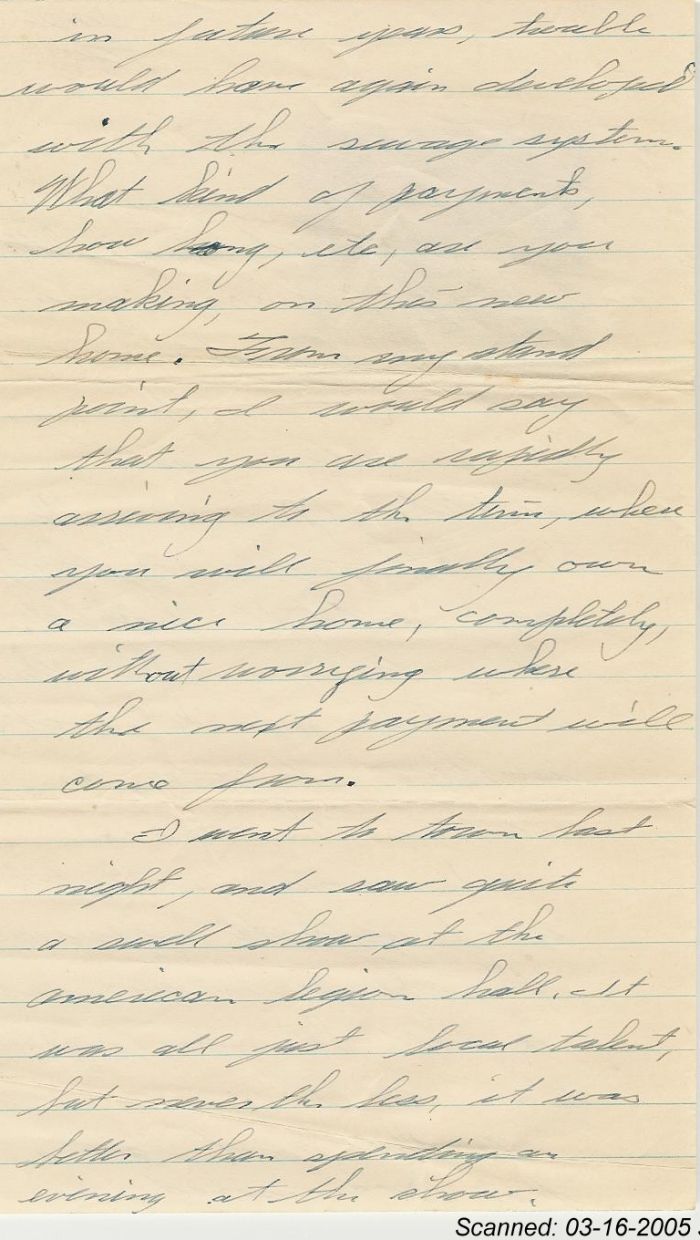 in future years, trouble
would have again developed
with the sewage system.
What kind of payments,
how long, etc, are you
making, on this new
home. From my stand
point, I would say
that you are rapidly
arriving to the time, when
you will finally own
a nice home, completely,
without worrying where
the next payment will
come from.
I went to town last
night, and saw quite
a swell show at the
american legion hall. It
was all just local talent,
but never the less, it was
better than spending an
evening at the show.
Scanned: 03-16-2005